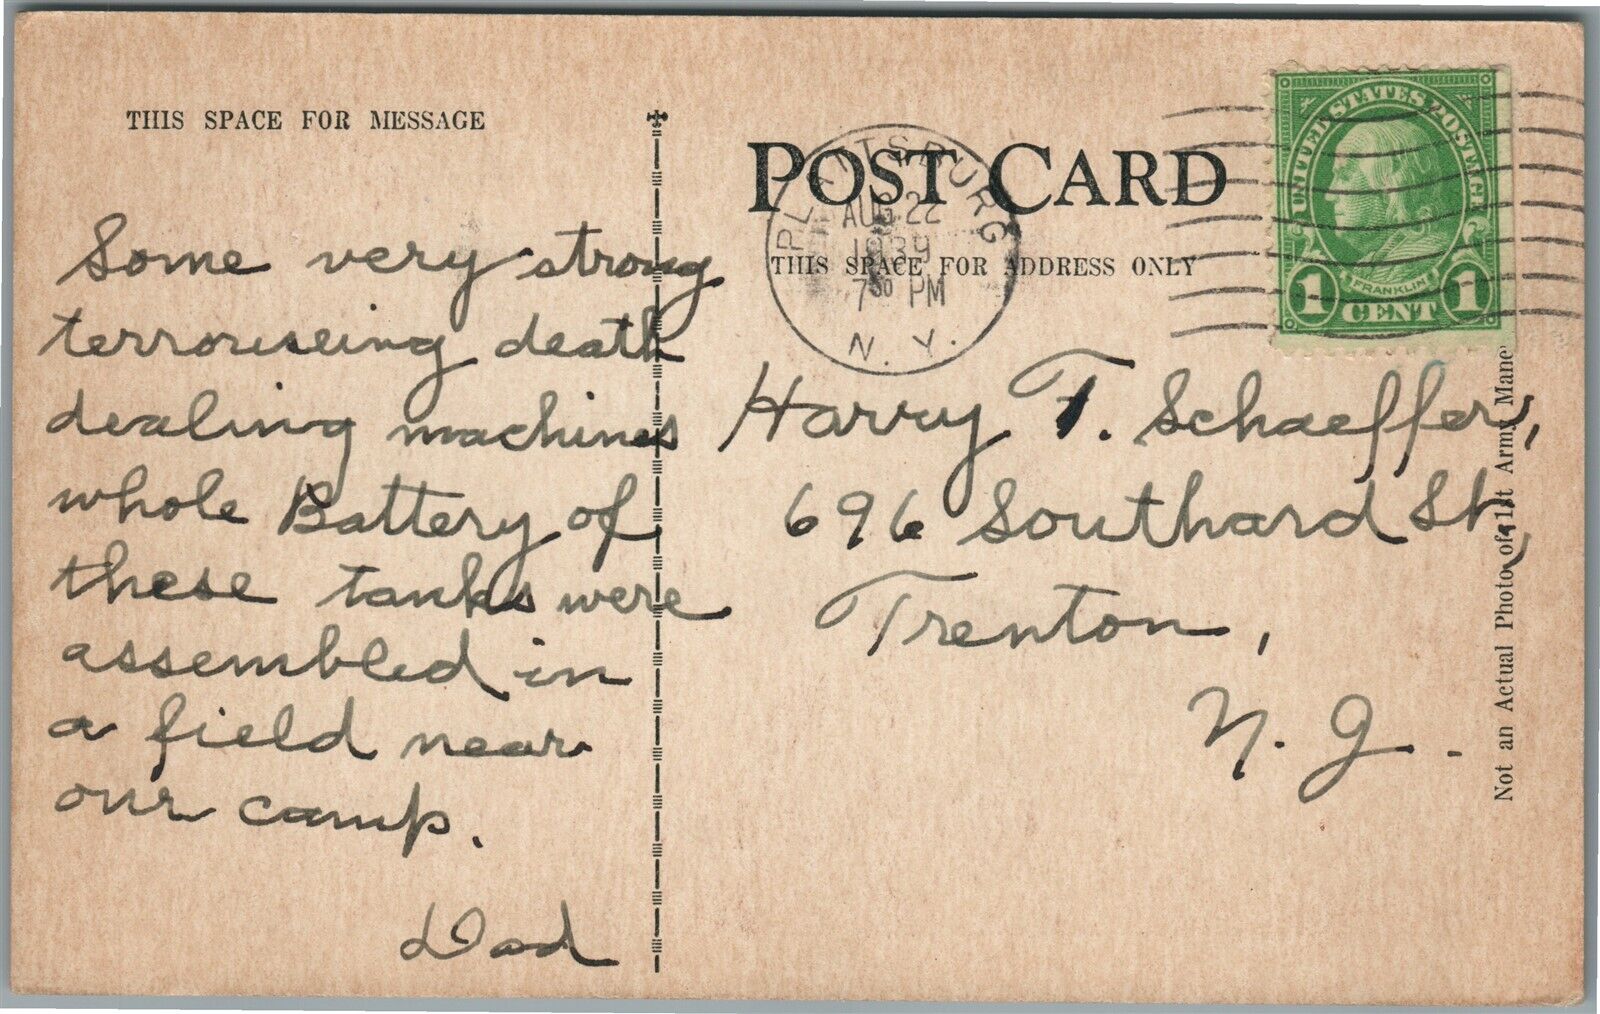 THIS SPACE FOR MESSAGE
Some very strong
terrouiseing death
dealing machines
whole Battery of
these tanks were
assembled in
a field near
our camp.
Dad
POST CARD
THIS SPACE FOR ADDRESS ONLY
PLATTSBURG
AUG 22
1939
7 30 PM
N. Y.
UNITED STATES POSTAGE
FRANKLIN
1 CENT 1
Harry T. Schaeffer,
696 Southard St,
Trenton,
N. J.
Not an Actual Photo of 1st Army Mane